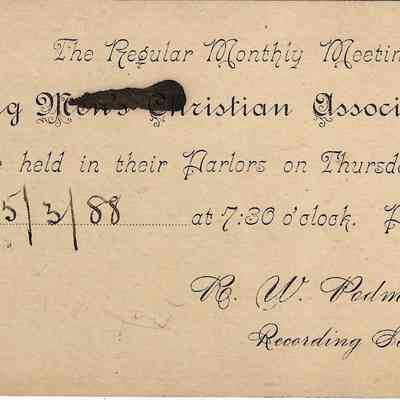 The Regular Monthly Meetin
g Men's Christian Associ
held in their Parlors on Thursda
5/3/88 at 7:30 o'clock. P
R. W. Podm
Recording S